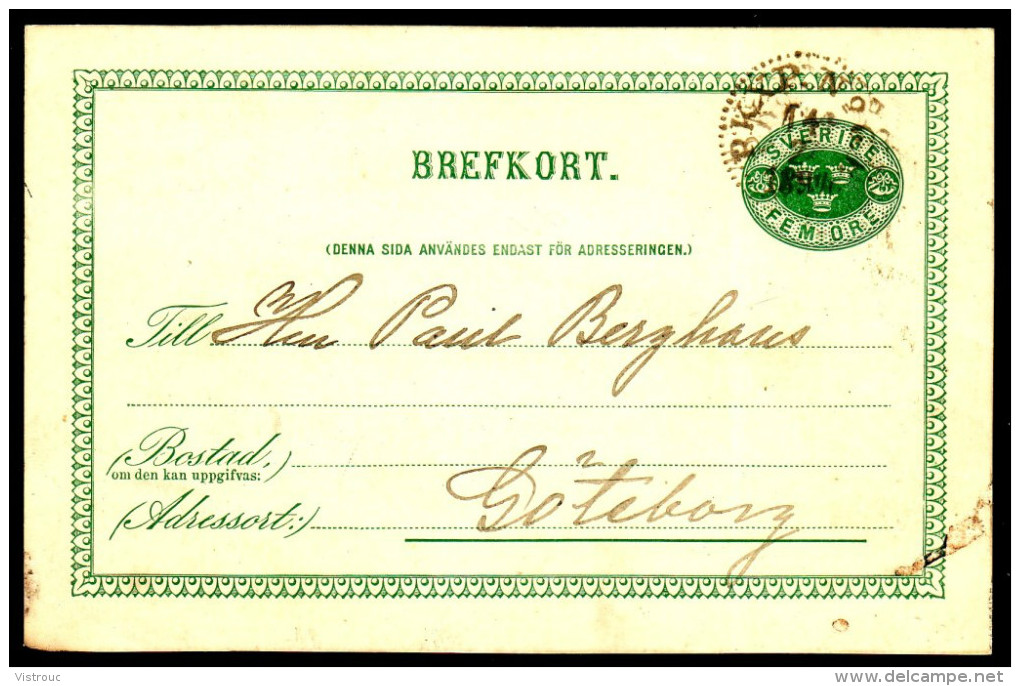 BREFKORT.
SVERIGE
FEM ÖRE
(DENNA SIDA ANVÄNDES ENDAST FÖR ADRESSERINGEN.)
Till Herr Paul Berghaus
(Bostad,)
om den kan uppgifvas:
Göteborg
(Adressort:)
Vistrouc
delcampe.net